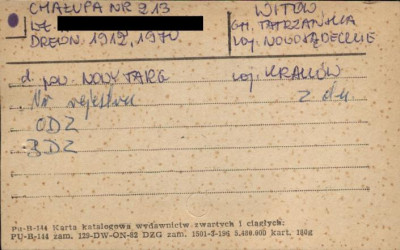 CHAŁUPA NR 213
WŁ.
DREWN. 1912, 1970
WITÓW
GM. TATRZAŃSKA
WOJ. NOWOSĄDECKIE
d. pow. NOWY TARG woj. KRAKÓW
Nr rejestru z dn.
ODZ
BDZ
PU-R-144 Karta katalogowa wydawnictw zwartych i ciągłych:
PU-R-144 zam. 129-DW-ON-82 DZG zam. 1501-T-196 5.480.000 kart. 180g